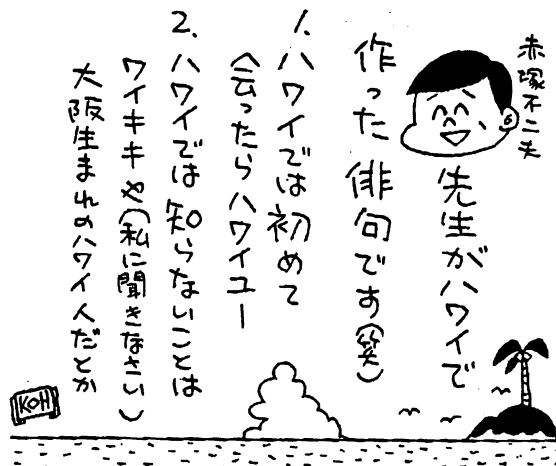 赤塚不二夫
先生がハワイで
作った俳句です(笑)
1.ハワイでは初めて
会ったらハワイユー
2.ハワイでは知らないことは
ワイキキや(私に聞きなさい)
大阪生まれのハワイ人だとか
KOH